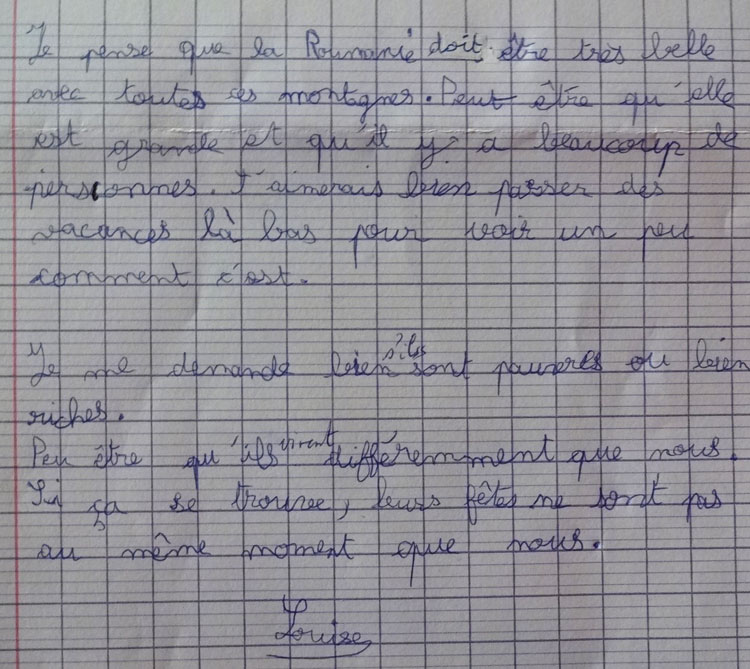 Je pense que la Roumanie doit être très belle
avec toutes ces montagnes. Peut être qu'elle
est grande et qu'il y a beaucoup de
personnes. J'aimerais bien passer des
vacances là bas pour voir un peu
comment c'est.
Je me demande bien s'ils sont pauvres ou bien
riches.
Peu être qu'ils vivent différemment que nous.
Si ça se trouve, leurs fêtes ne sont pas
au même moment que nous.
Louise